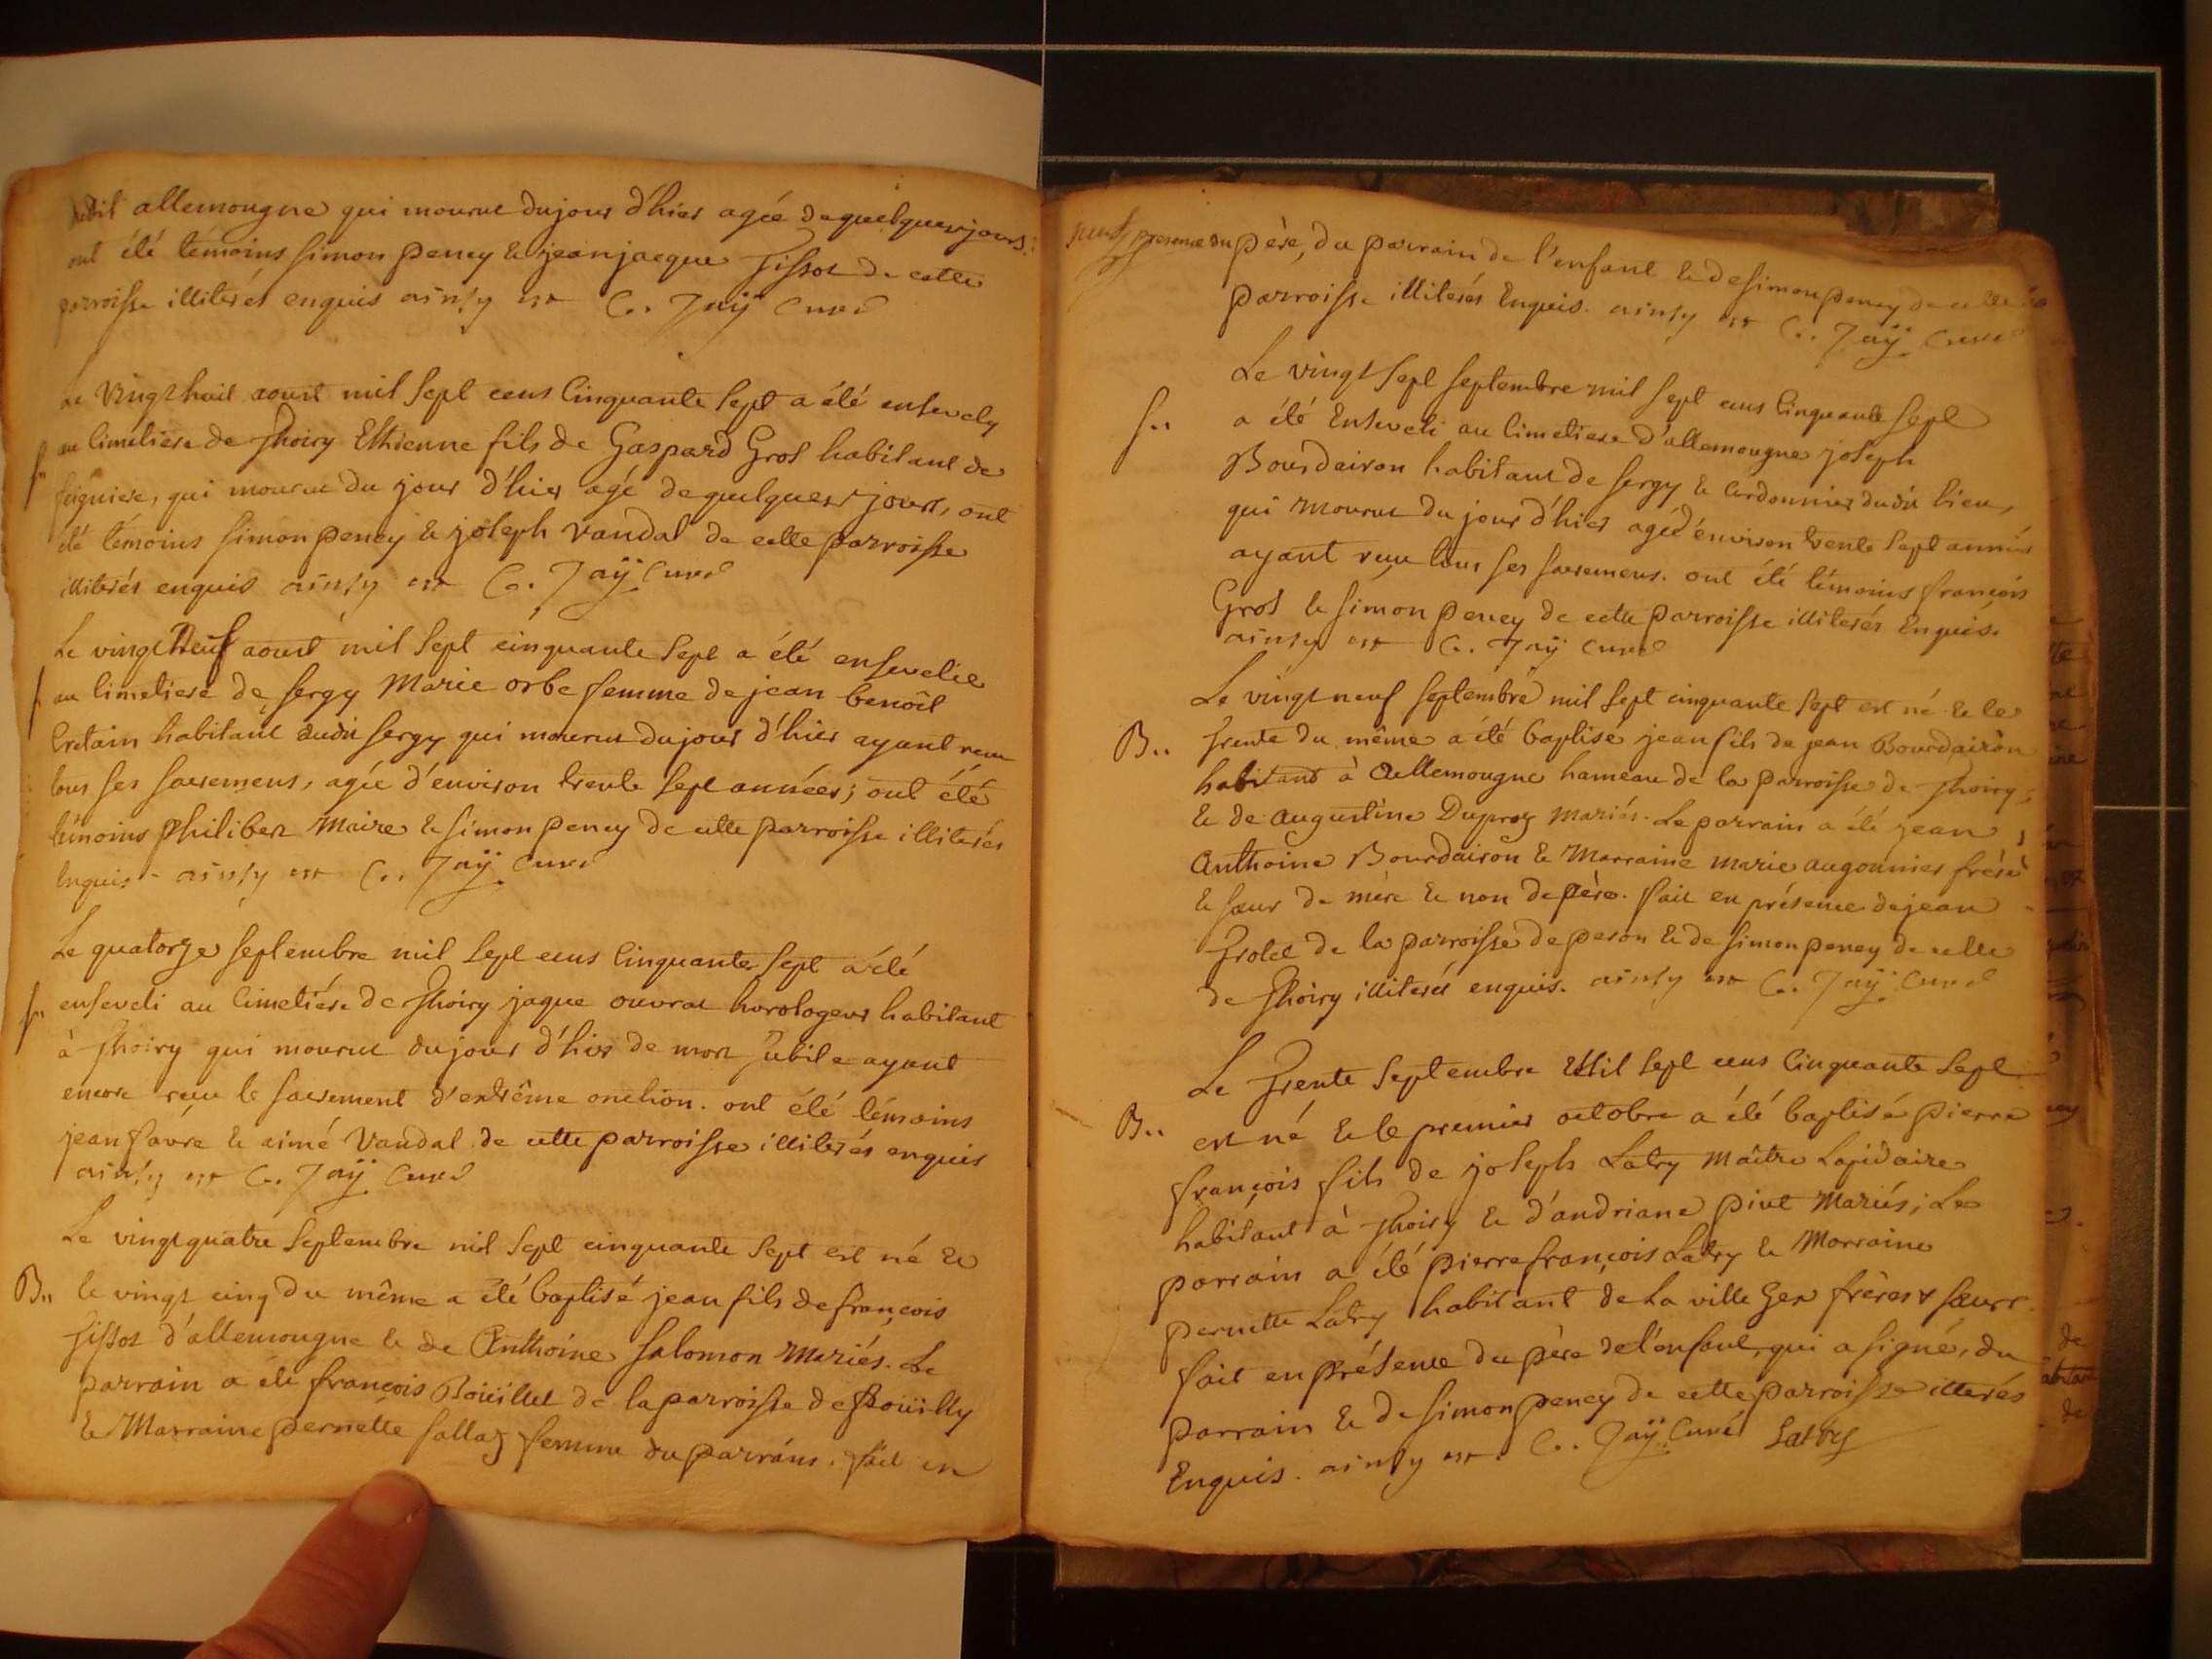 dudit allemougne qui mourut du jour d'hier agée de quelques jours.
ont été témoins simon peney & jean jacque Tissot de cette
parroisse illiterés enquis ainsy est C. Jaÿ Curé
Le vingt huit aoust mil sept cens Cinquante Sept a été ensevely
S.. au Cimetiere de Thoiry Ethienne fils de Gaspard Grol habitant de
feigniere, qui mourut du jour d'hier agé de quelques jours, ont
été témoins simon peney & joseph vandal de cette parroisse
illiterés enquis ainsy est C. Jaÿ Curé
Le vingt Neuf aoust mil sept cinquante sept a été ensevelie
S au Cimetiere de sergy Marie orbe femme de jean benoît
Cretain habitant dudit sergy qui mourut du jour d'hier ayant reçu
tous ses sacremens, agée d'environ trente sept années; ont été
témoins Philibert Maire & simon peney de cette parroisse illiterés
Enquis - ainsy est C. Jaÿ Curé
Le quatorze septembre mil sept cens Cinquante sept a été
S.. enseveli au Cimetiére de Thoiry jaque ouvrat horologeur habitant
à Thoiry qui mourut du jour d'hier de mort subite ayant
encore reçu le sacrement d'extrême onction. ont été témoins
jean favre & aimé Vandal de cette parroisse illiterés enquis
ainsy est C. Jaÿ Curé
Le vingt quatre septembre mil sept cinquante sept est né &
B.. le vingt cinq du même a été baptisé jean fils de françois
Tissot d'allemougne & de Anthoine Salomon Mariés. Le
parrain a été françois Boüillet de la parroisse de Poüilly
& Marraine pernette sallaz femme du parrain. fait en
presence du père, du parrain de l'enfant & de simon peney de cette
parroisse illiterés Enquis. ainsy est C. Jaÿ Curé
Le vingt sept septembre mil sept cens Cinquante sept
S.. a été Enseveli au Cimetiere d'allemougne joseph
Bourdairon habitant de sergy & Cordonnier dudit lieu,
qui Mourut du jour d'hier agé d'environ trente sept années
ayant reçu tous ses sacremens. ont été témoins françois
Grol & simon peney de cette parroisse illiterés Enquis.
ainsy est C. Jaÿ Curé
Le vingt neuf septembre mil sept cinquante sept est né & le
B.. Trente du même a été baptisé jean fils de jean Bourdairon
habitant à Allemougne hameau de la parroisse de Thoiry;
& de Augustine Duproz Mariés. Le parrain a été jean
Anthoine Bourdairon & Marraine marie augonnier frère
& sœur de mère & non de père. fait en présence de jean
Grolet de la parroisse de peron & de simon peney de celle
de Thoiry illiterés enquis. ainsy est C. Jaÿ Curé
Le Trente septembre Mil sept cens Cinquante Sept
B.. est né & le premier octobre a été baptisé pierre
françois fils de joseph Latry Maître Lapidaire
habitant à Thoiry & d'andriane pivet Mariés; Le
parrain a été pierre françois Latry & Marraine
pernette Latry habitant de La ville Gex frères & sœurs
fait en présence du père de l'enfant, qui a signé, du
parrain & de simon peney de cette parroisse illterés
Enquis. ainsy est. C. Jaÿ Curé Latry